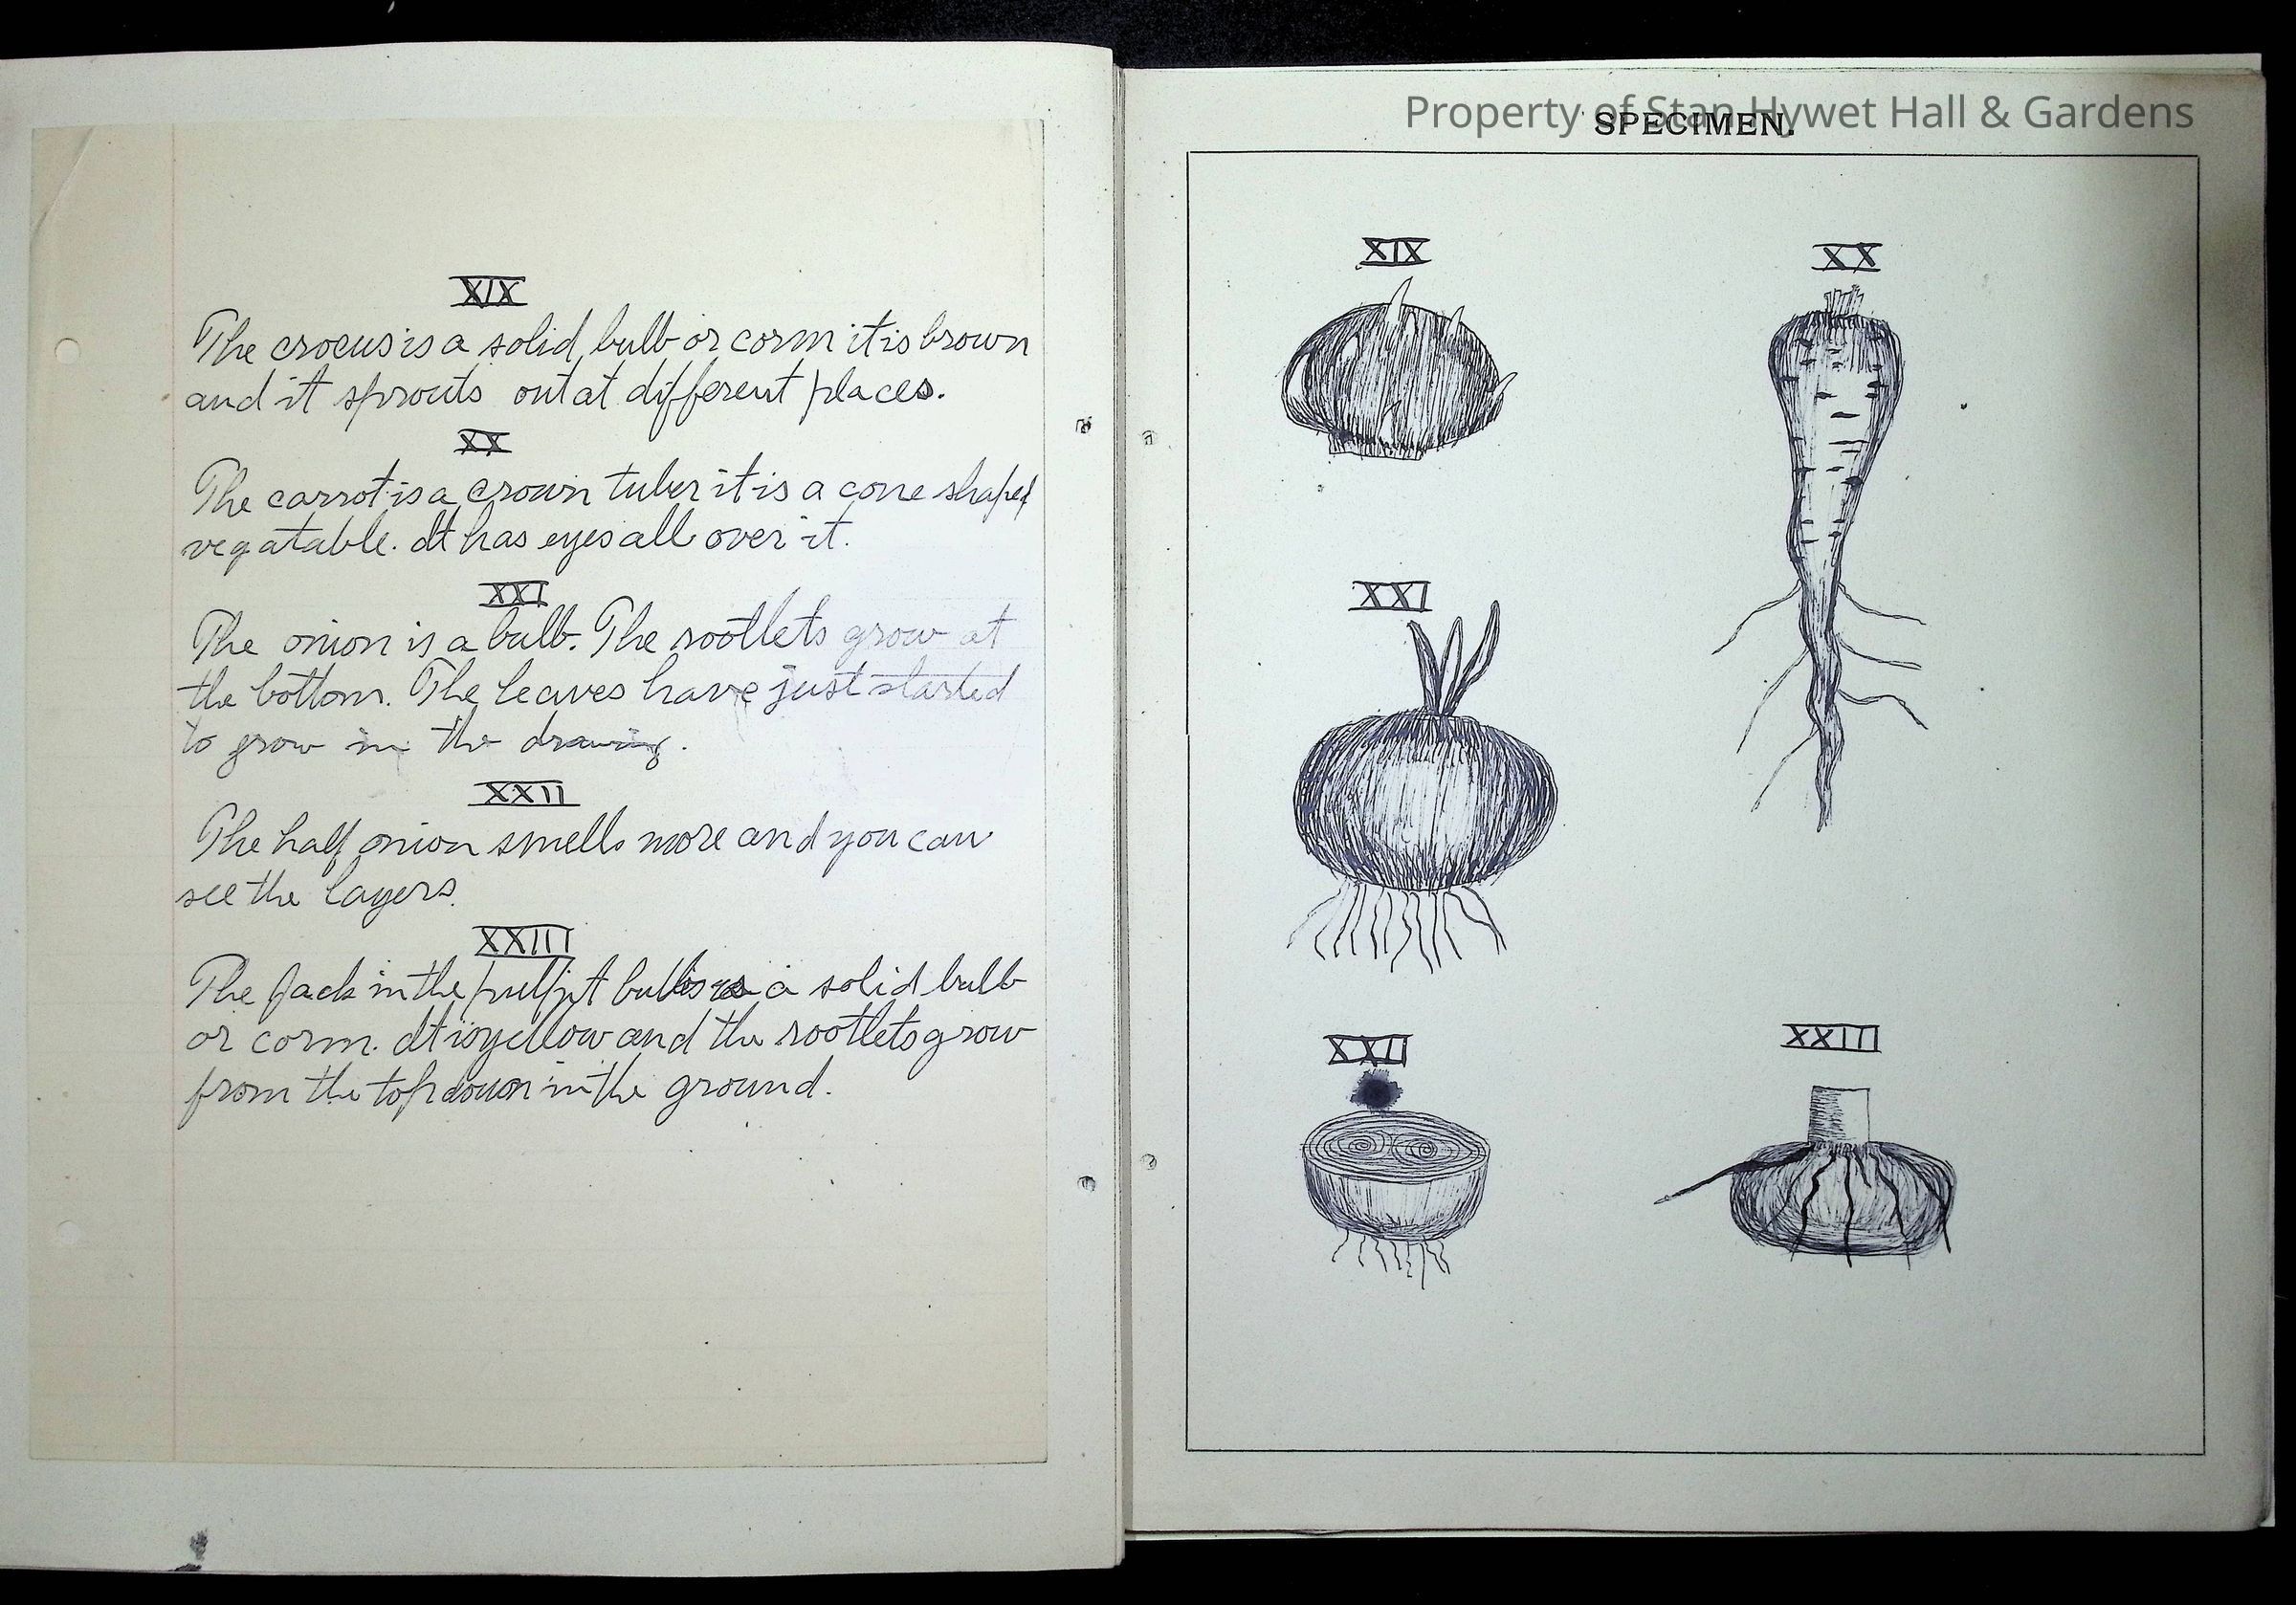 XIX
The crocus is a solid bulb or corm it is brown
and it sprouts out at different places.
XX
The carrot is a crown tuber it is a cone shaped
vegatable. It has eyes all over it.
XXI
The onion is a bulb. The rootlets grow at
the bottom. The leaves have just started
to grow in the drawing.
XXII
The half onion smells more and you can
see the layers.
XXIII
The Jack in the pulpit bulb is a solid bulb
or corm. It is yellow and the rootlets grow
from the top down in the ground.
Property of Stan Hywet Hall & Gardens
SPECIMEN.
XIX
XX
XXI
XXII
XXIII